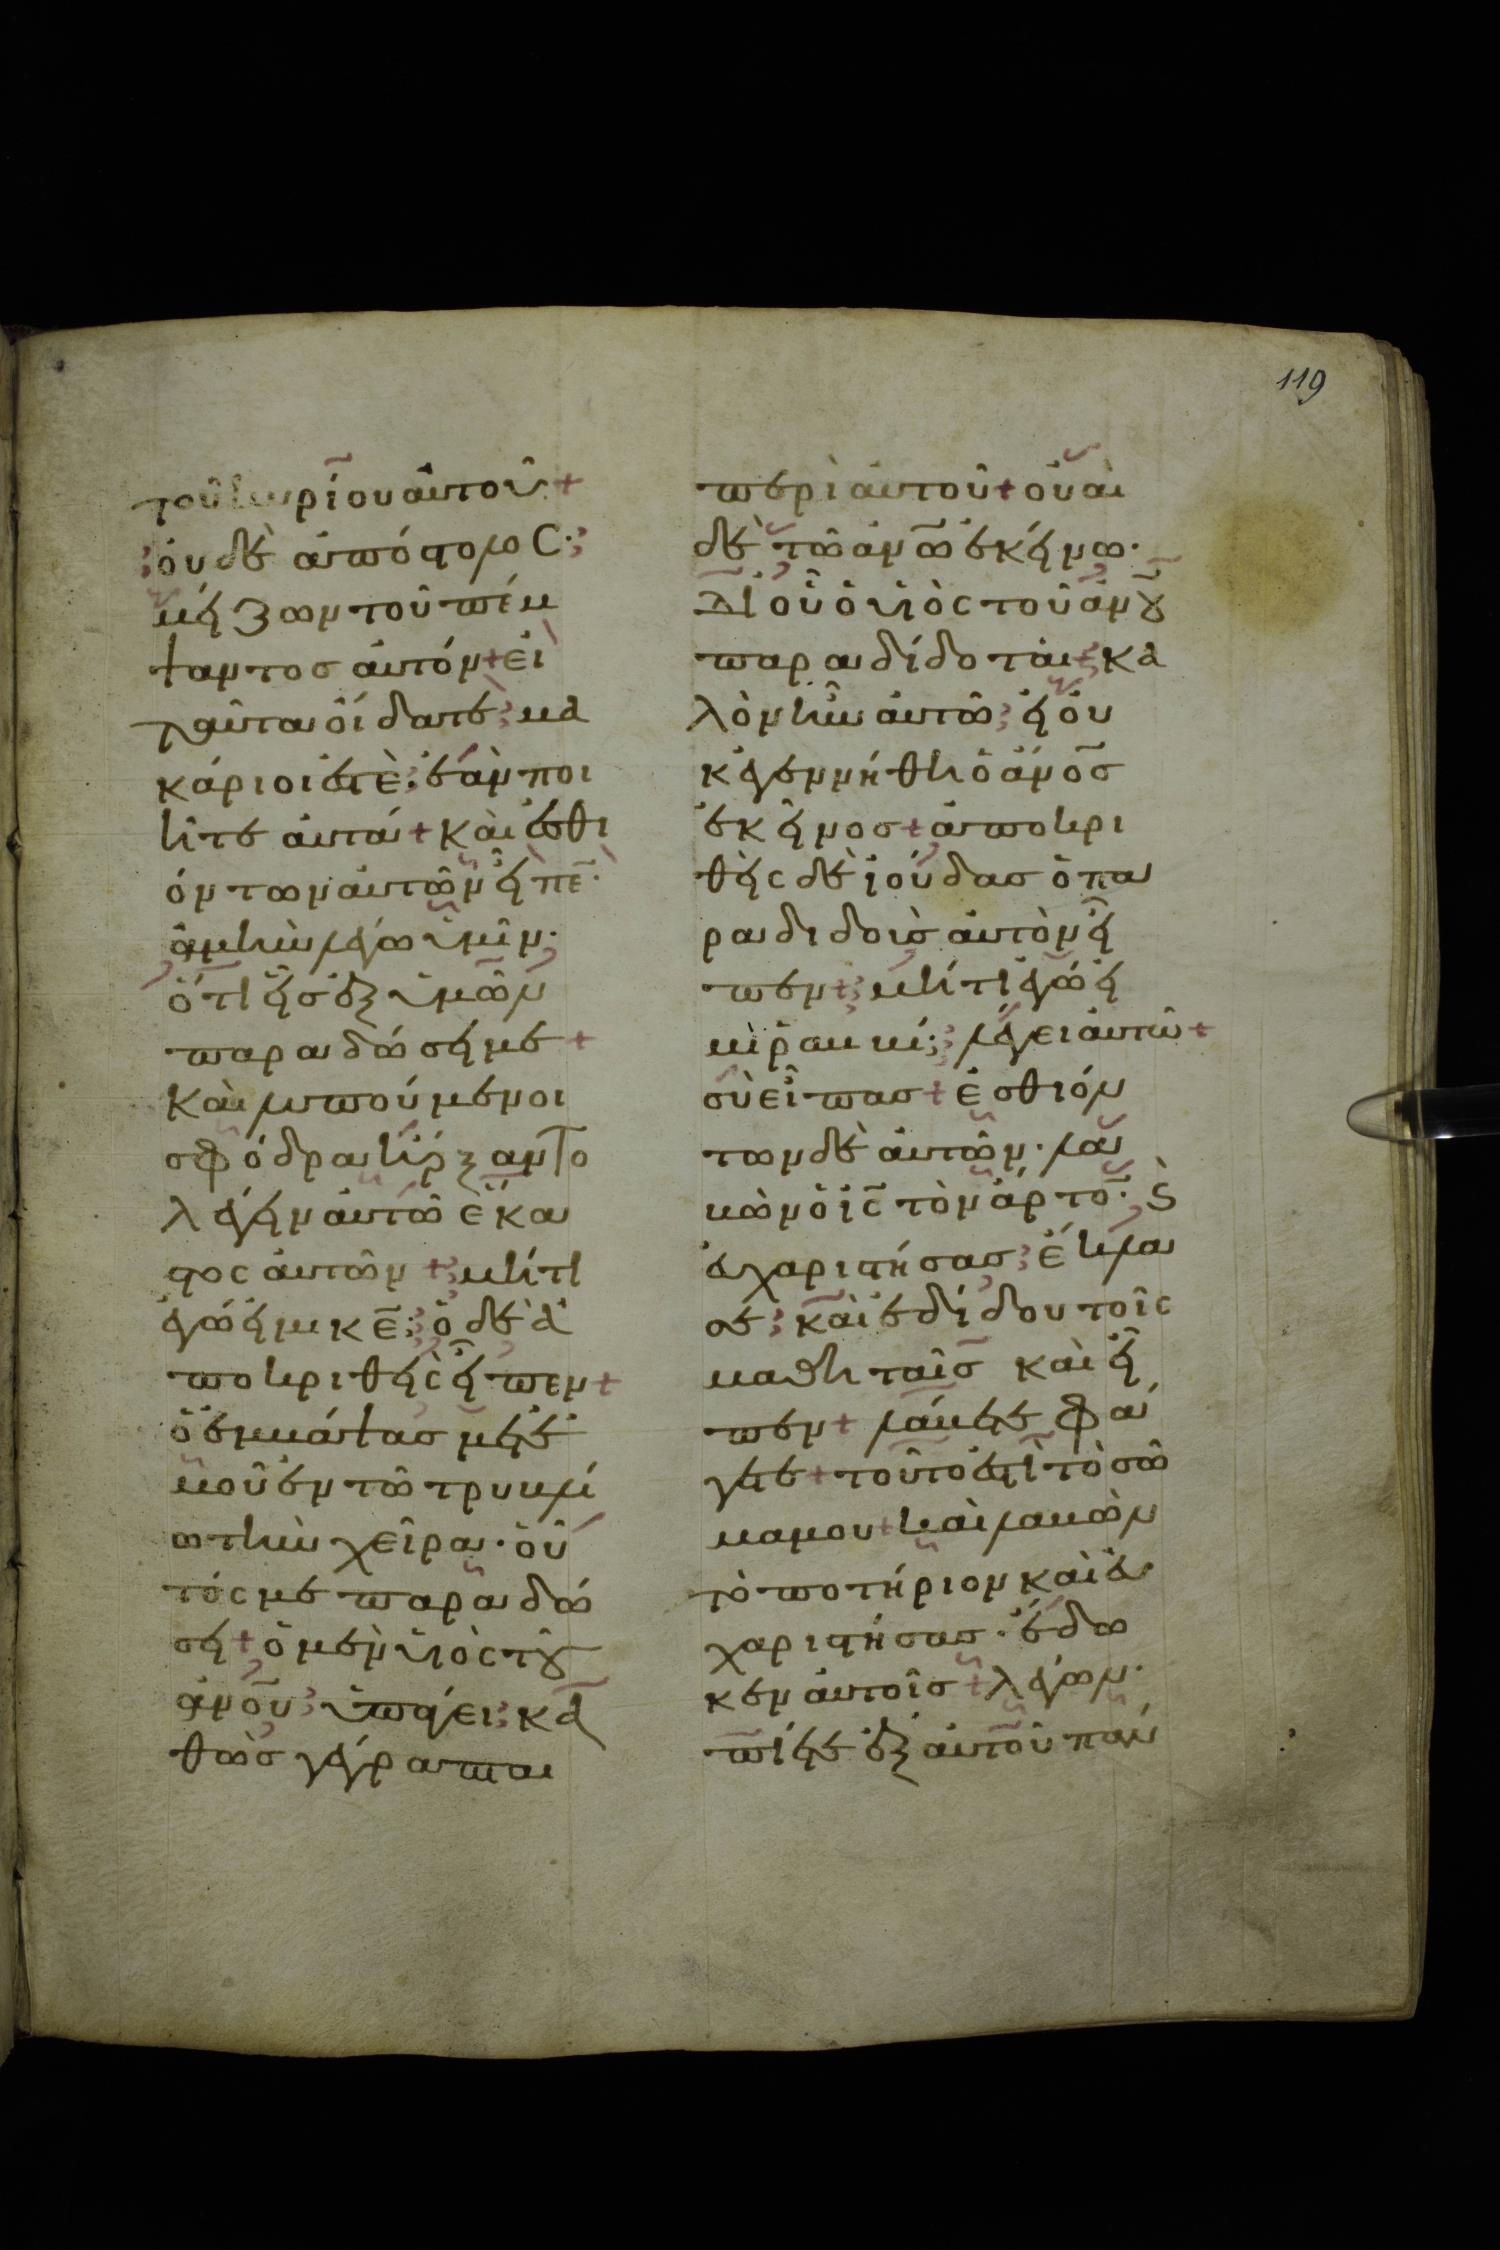 119
τοῦ κυρίου αὐτοῦ +
οὐδὲ ἀπόστολος·
μείζων τοῦ πέμ
ψαντος αὐτόν + εἰ
ταῦτα οἴδατε μα
κάριοί ἐστὲ· ἐὰν ποι
ῆτε αὐτά + καὶ ἐσθι
όντων αὐτῶν εἶπε·
ἀμὴν λέγω ὑμῖν·
ὅτι εἷς ἐξ ὑμῶν
παραδώσει με +
καὶ λυπούμενοι
σφόδρα ἤρξαντο
λέγειν αὐτῶ ἕκα
στος αὐτῶν + μήτι
ἐγώ εἰμι κε̅· ὁ δὲ ἀ
ποκριθεὶς εἶπεν +
ὁ ἐμβάψας μετ ἐ
μοῦ ἐν τῶ τρυβλί
ω τὴν χεῖρα· οὗ
τός με παραδώ
σει + ὁ μὲν υἱὸς τοῦ
ἀνου̅ ὑπάγει κα
θὼς γέγραπται
περὶ αὐτοῦ + οὐαὶ
δὲ τῶ ἀνω̅ ἐκείνω·
δι οὗ ὁ υἱὸς τοῦ ἀνου̅
παραδίδοται + κα
λὸν ἦν αὐτῶ εἰ οὐ
κ ἐγεννήθη ὁ ἀνος̅
ἐκεῖνος + ἀποκρι
θεὶς δὲ ἰούδας ὁ πα
ραδιδοὺς αὐτὸν εἶ
πεν + μήτι ἐγώ εἰ
μι ῥαββί· λέγει αὐτῶ +
σὺ εἶπας + ἐσθιόν
των δὲ αὐτῶν· λα
βὼν ὁ ις̅ τὸν ἄρτον· καὶ
εὐχαριστήσας ἔκλα
σε καὶ ἐδίδου τοῖς
μαθηταῖς καὶ εἶ
πεν + λάβετε φά
γετε + τοῦτό ἐστὶ τὸ σῶ
μα μου + καὶ λαβὼν
τὸ ποτήριον καὶ εὐ
χαριστήσας· ἔδω
κεν αὐτοῖς + λέγων·
πίετε ἐξ αὐτοῦ πάν